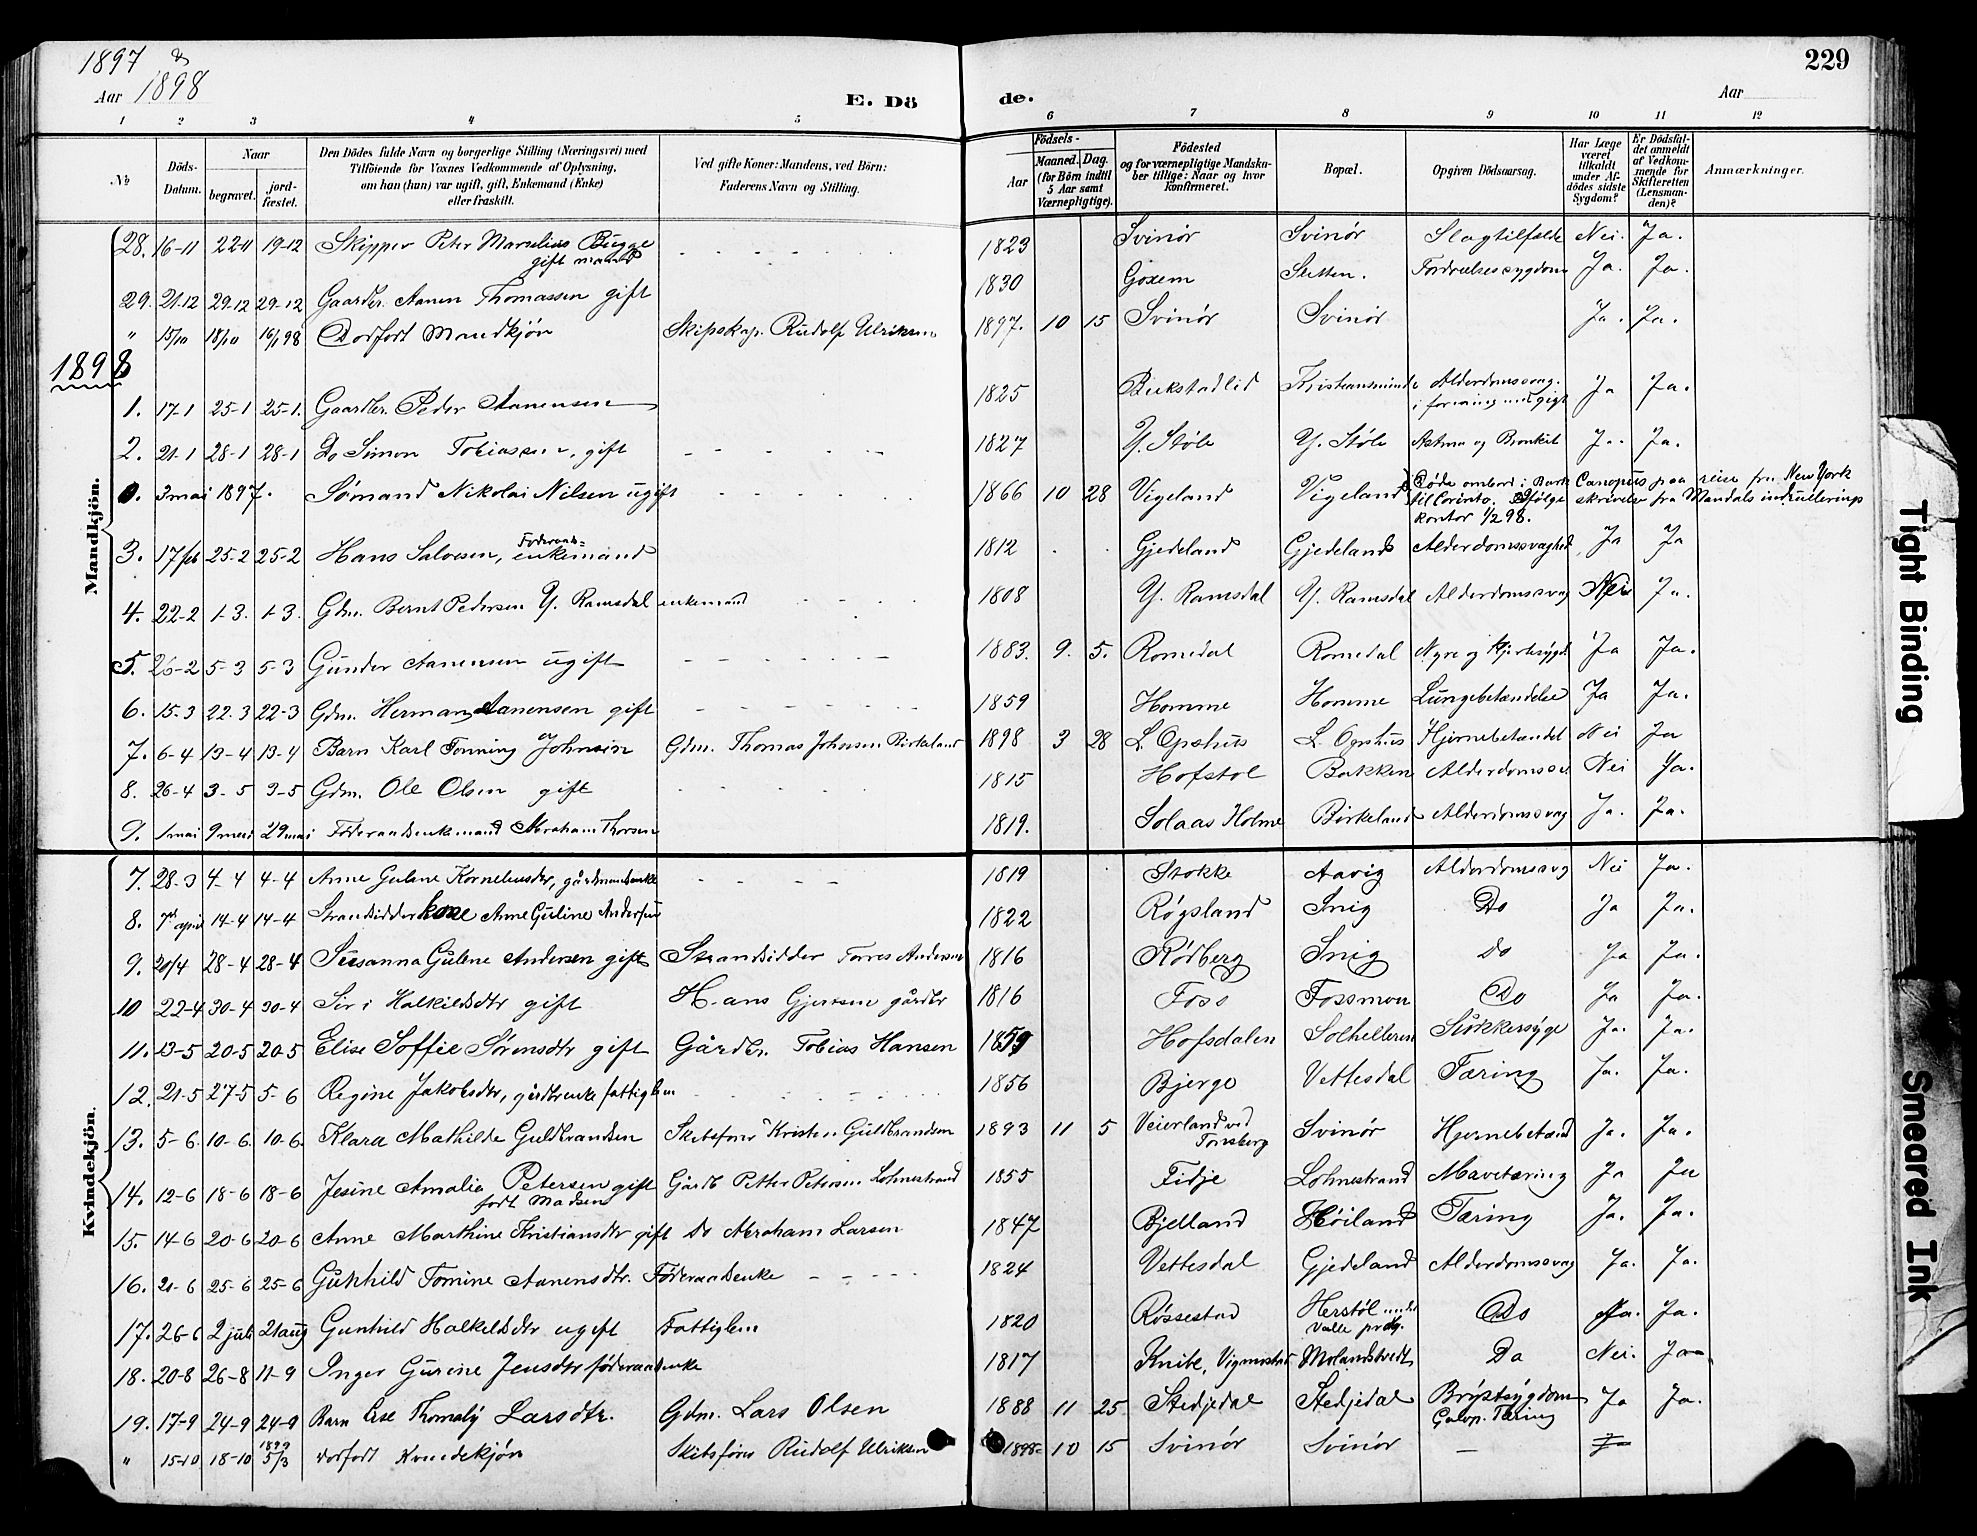 1897 &
Aar 1898
E. Dö
de.
229
Aar
1 2 3 4 5 6 7 8 9 10 11 12
№ Döds-Datum. Naar begravet. jord-fæstet. Den Dödes fulde Navn og borgerlige Stilling (Næringsvei) med Tilföiende for Voxnes Vedkommende af Oplysning, om han (hun) var ugift, gift, Enkemand (Enke) eller fraskilt. Ved gifte Koner: Mandens, ved Börn: Faderens Navn og Stilling. Födsels- Aar Maaned. Dag. (for Börn indtil 5 Aar samt Værnepligtige). Födested og for værnepligtige Mandskaber tillige: Naar og hvor Konfirmeret. Bopæl. Opgiven Dödsaarsag. Har Læge været tilkaldt under Afdödes sidste Sygdom? Er Dödsfaldet anmeldt af Vedkommende for Skifteretten (Lensmanden)? Anmærkninger.
Mandkjön.
28. 16-11 22-11 19-12 Skipper Peter Marselius Bugge gift mand 1823 Svinör Svinör Slagtilfælde Nei. Ja.
29. 21-12 29-12 29-12 Gaardbr. Aanen Thomassen gift 1830 Goxem Sletten. Ja. Ja.
" 15/10 18/10 16/1 98 Dødfødt Mandkjön Skipskap. Rudolf Ulriksen 1897. 10 15 Svinör Svinör Ja. Ja.
1898
1. 17-1 25-1 25-1. Gaardbr. Peder Aanensen 1825 Alderdomssvag. i forening med gigt Ja Ja.
2. 21-1 28-1 28-1 Do Simon Tobiassen, gift 1827 Y. Støle Y. Støle Astma og Bronkit Ja. Ja.
0. 3 mai 1897. Sømand Nikolai Nilsen ugift 1866 10 28 Vigeland Vigeland Døde ombord i Bark Canopus paa reise fra New York
til Corinto. Ifølge skrivelse fra Mandals indrulleringskontor 1/2 98.
3. 17/feb 25-2 25-2 Hans Salvesen, Føderaads= enkemand 1812 Gjedeland Gjedeland Alderdomssvaghed Ja Ja
4. 22-2 1-3. 1-3. Gdm. Bernt Pedersen Y. Ramsdal enkemand 1808 Y. Ramsdal Y. Ramsdal Alderdomssvag Nei Ja.
5. 26-2 5-3 5-3 Gunder Aanensen ugift 1883. 9. 5. Romedal Romedal Nyre og Hjertesygd. Ja Ja.
6. 15-3 22-3 22-3 Gdm. Herman Aanensen gift 1859 Homme Homme Lungebetændelse Ja Ja.
7. 6-4 13-4 13-4 Barn Karl Tønning Johnsen Gdm. Thomas Johnsen Birkeland 1898 3 28 L. Opshus L. Opshus Hjernebetændel Nei Ja
8. 26-4 3-5 3-5 Gdm. Ole Olsen gift 1815 Hofstol Bakken Alderdomssv Nei Ja.
9. 1 mai 9 mai 29 mai Føderaadsenkemand Abraham Thorsen 1819. Solaas Holme Birkeland Alderdomssvag Ja. Ja.
Kvindekjön.
7. 28-3 4-4 4-4 Anne Gulene Korneliusdtr, gårdmandsenke 1819 Stokke Aavig Alderdomssvag Nei Ja.
8. 7de april 14-4 14-4 Strandsidderkone Anne Guline Andersen 1822 Røgsland Snig Do Ja Ja.
9. 20/4 28-4 28-4 Susanna Gulene Andersen gift Strandsidder Torres Andersen 1816 Rødberg Snig Do Ja Ja.
10 22-4 30-4 30-4 Siri Halkildsdtr gift Hans Gjertsen gårdbr 1816 Foss Fossmon Do Ja Ja.
11. 13-5 20-5 20-5 Elise Soffie Sørensdtr gift Gårdbr. Tobias Hansen 1859 Hofsdalen Solhelleren Sukkersyge Ja. Ja.
12. 21-5 27-5 5-6 Regine Jakobsdtr, gårdbrenke fattiglem 1856 Bjerge Vettesdal Tæring Ja. Ja.
13. 5-6. 10-6. 10-6. Klara Mathilde Guldbrandsen Skibsfører Kristen Guldbrandsen 1893 11 5 Veierland ved Tønsberg Svinör Hjernebetænd Ja. Ja.
14. 12-6 18-6 18-6 Jesine Amalie Petersen gift født Madsen Gårdb Petter Petersen Lohnestrand 1855 Fidje Lohnestrand Mavetæring Ja Ja
15. 14-6 20-6 20-6 Anne Marthine Kristiansdtr gift Do Abraham Larsen 1847 Bjelland Høiland Tæring Ja. Ja.
16. 21-6 25-6 25-6 Gunhild Tomine Aanensdtr. Føderaadsenke 1824 Vettesdal Gjedeland Alderdomssvag Ja. Ja.
17. 26-6 2 juli 21 aug Gunhild Halkildsdtr ugift Fattiglem 1820 Røssestad Herstøl Valle prstg. Do Ja. Ja.
18. 20-8 26-8 11-9 Inger Gurine Jensdtr føderaadsenke 1817 Knibe, Vigmostad Molandstvedt Do Nei. Ja
19. 17-9 24-9 24-9 Barn Thomaly Larsdtr. Gdm. Lars Olsen 1888 11 25 Stedjedal Stedjedal Brystsygdom Galop. Tæring Ja Ja.
" 15-10 18-10 1899 5/3 dødfødt Kvindekjön Skibsfører Rudolf Ulriksen 1898 10 15 Svinör Svinör — Ja
Tight Binding
Smeared Ink